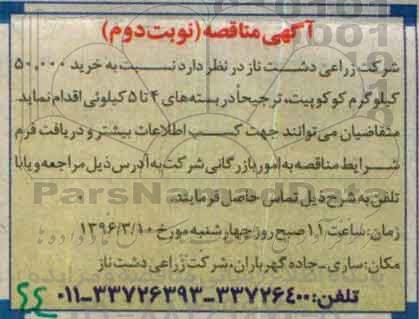 آگهی مناقصه (نوبت دوم)
شرکت زراعی دشت ناز در نظر دارد نسبت به خرید ۵۰,۰۰۰
کیلوگرم کوکوپیت، ترجیحاً در بسته‌های ۴ تا ۵ کیلوئی اقدام نماید.
متقاضیان می‌توانند جهت کسب اطلاعات بیشتر و دریافت فرم
شرایط مناقصه به امور بازرگانی شرکت به آدرس ذیل مراجعه و یا با
تلفن به شرح ذیل تماس حاصل فرمایند.
ParsNamadData
زمان: ساعت ۱۱ صبح روز چهارشنبه مورخ ۱۳۹۶/۳/۱۰
مکان: ساری - جاده گهرباران، شرکت زراعی دشت ناز
تلفن: ۳۳۷۲۶۴۰۰-۳۳۷۲۶۳۹۳-۰۱۱
۴۴